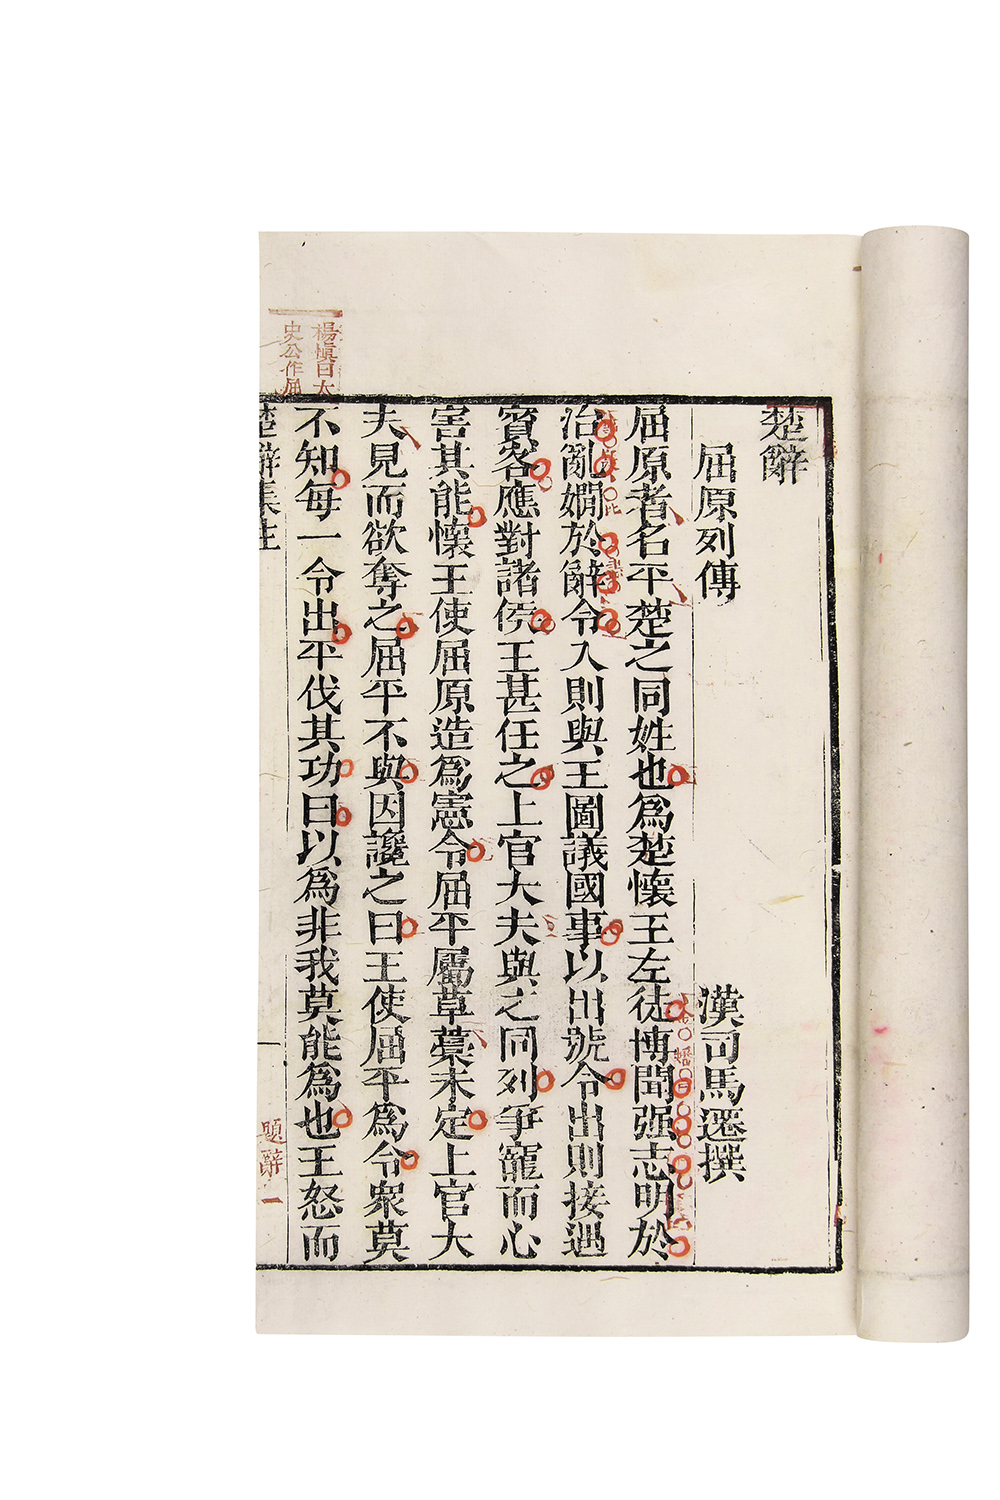 楚辭
屈原列傳
漢司馬遷撰
屈原者名平楚之同姓也為楚懷王左徒博聞强志明於
治亂嫺於辭令入則與王圖議國事以出號令出則接遇
賓客應對諸侯王甚任之上官大夫與之同列爭寵而心
害其能懷王使屈原造為憲令屈平屬草藁未定上官大
夫見而欲奪之屈平不與因讒之曰王使屈平為令衆莫
不知每一令出平伐其功曰以為非我莫能為也王怒而
楊慎曰太
史公作屈
楚辭集注
題辭
一